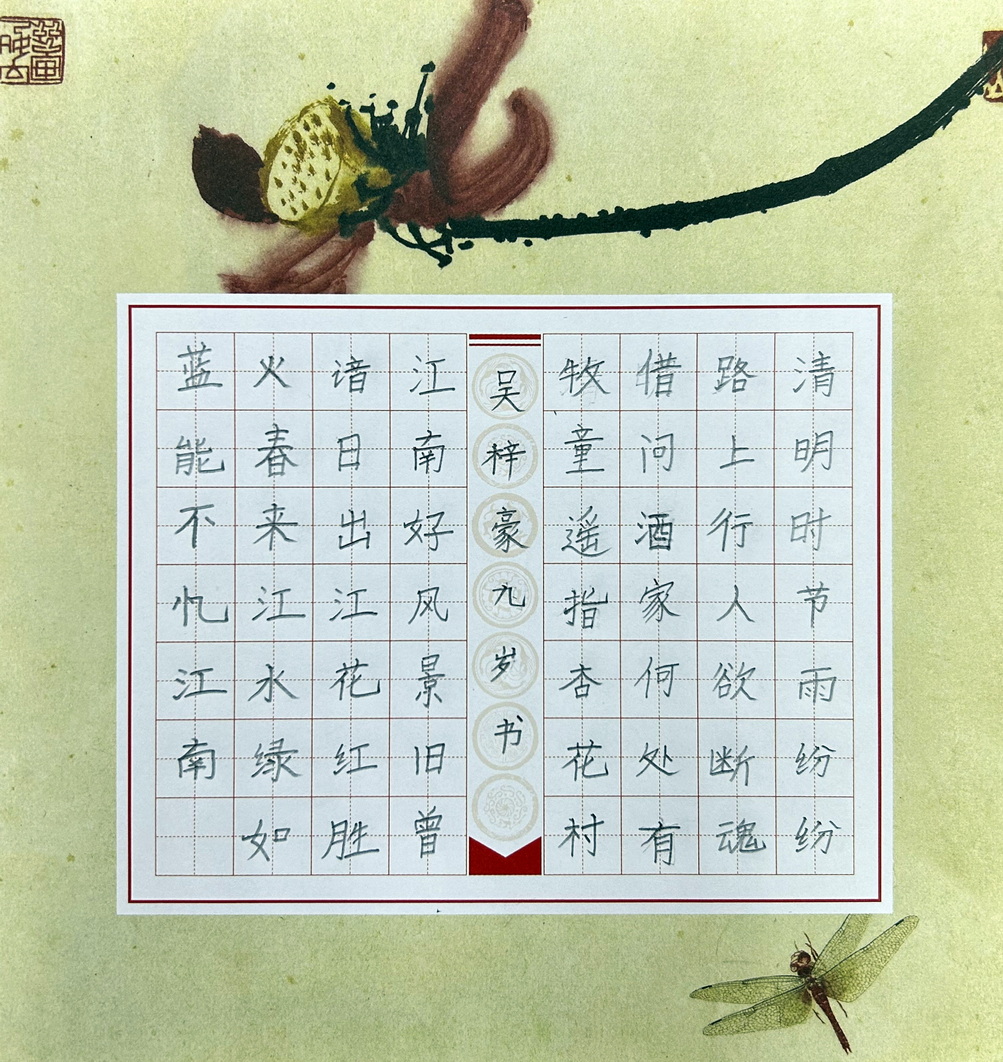 清明时节雨纷纷
路上行人欲断魂
借问酒家何处有
牧童遥指杏花村
吴梓豪九岁书
江南好风景旧曾
谙日出江花红胜
火春来江水绿如
蓝能不忆江南